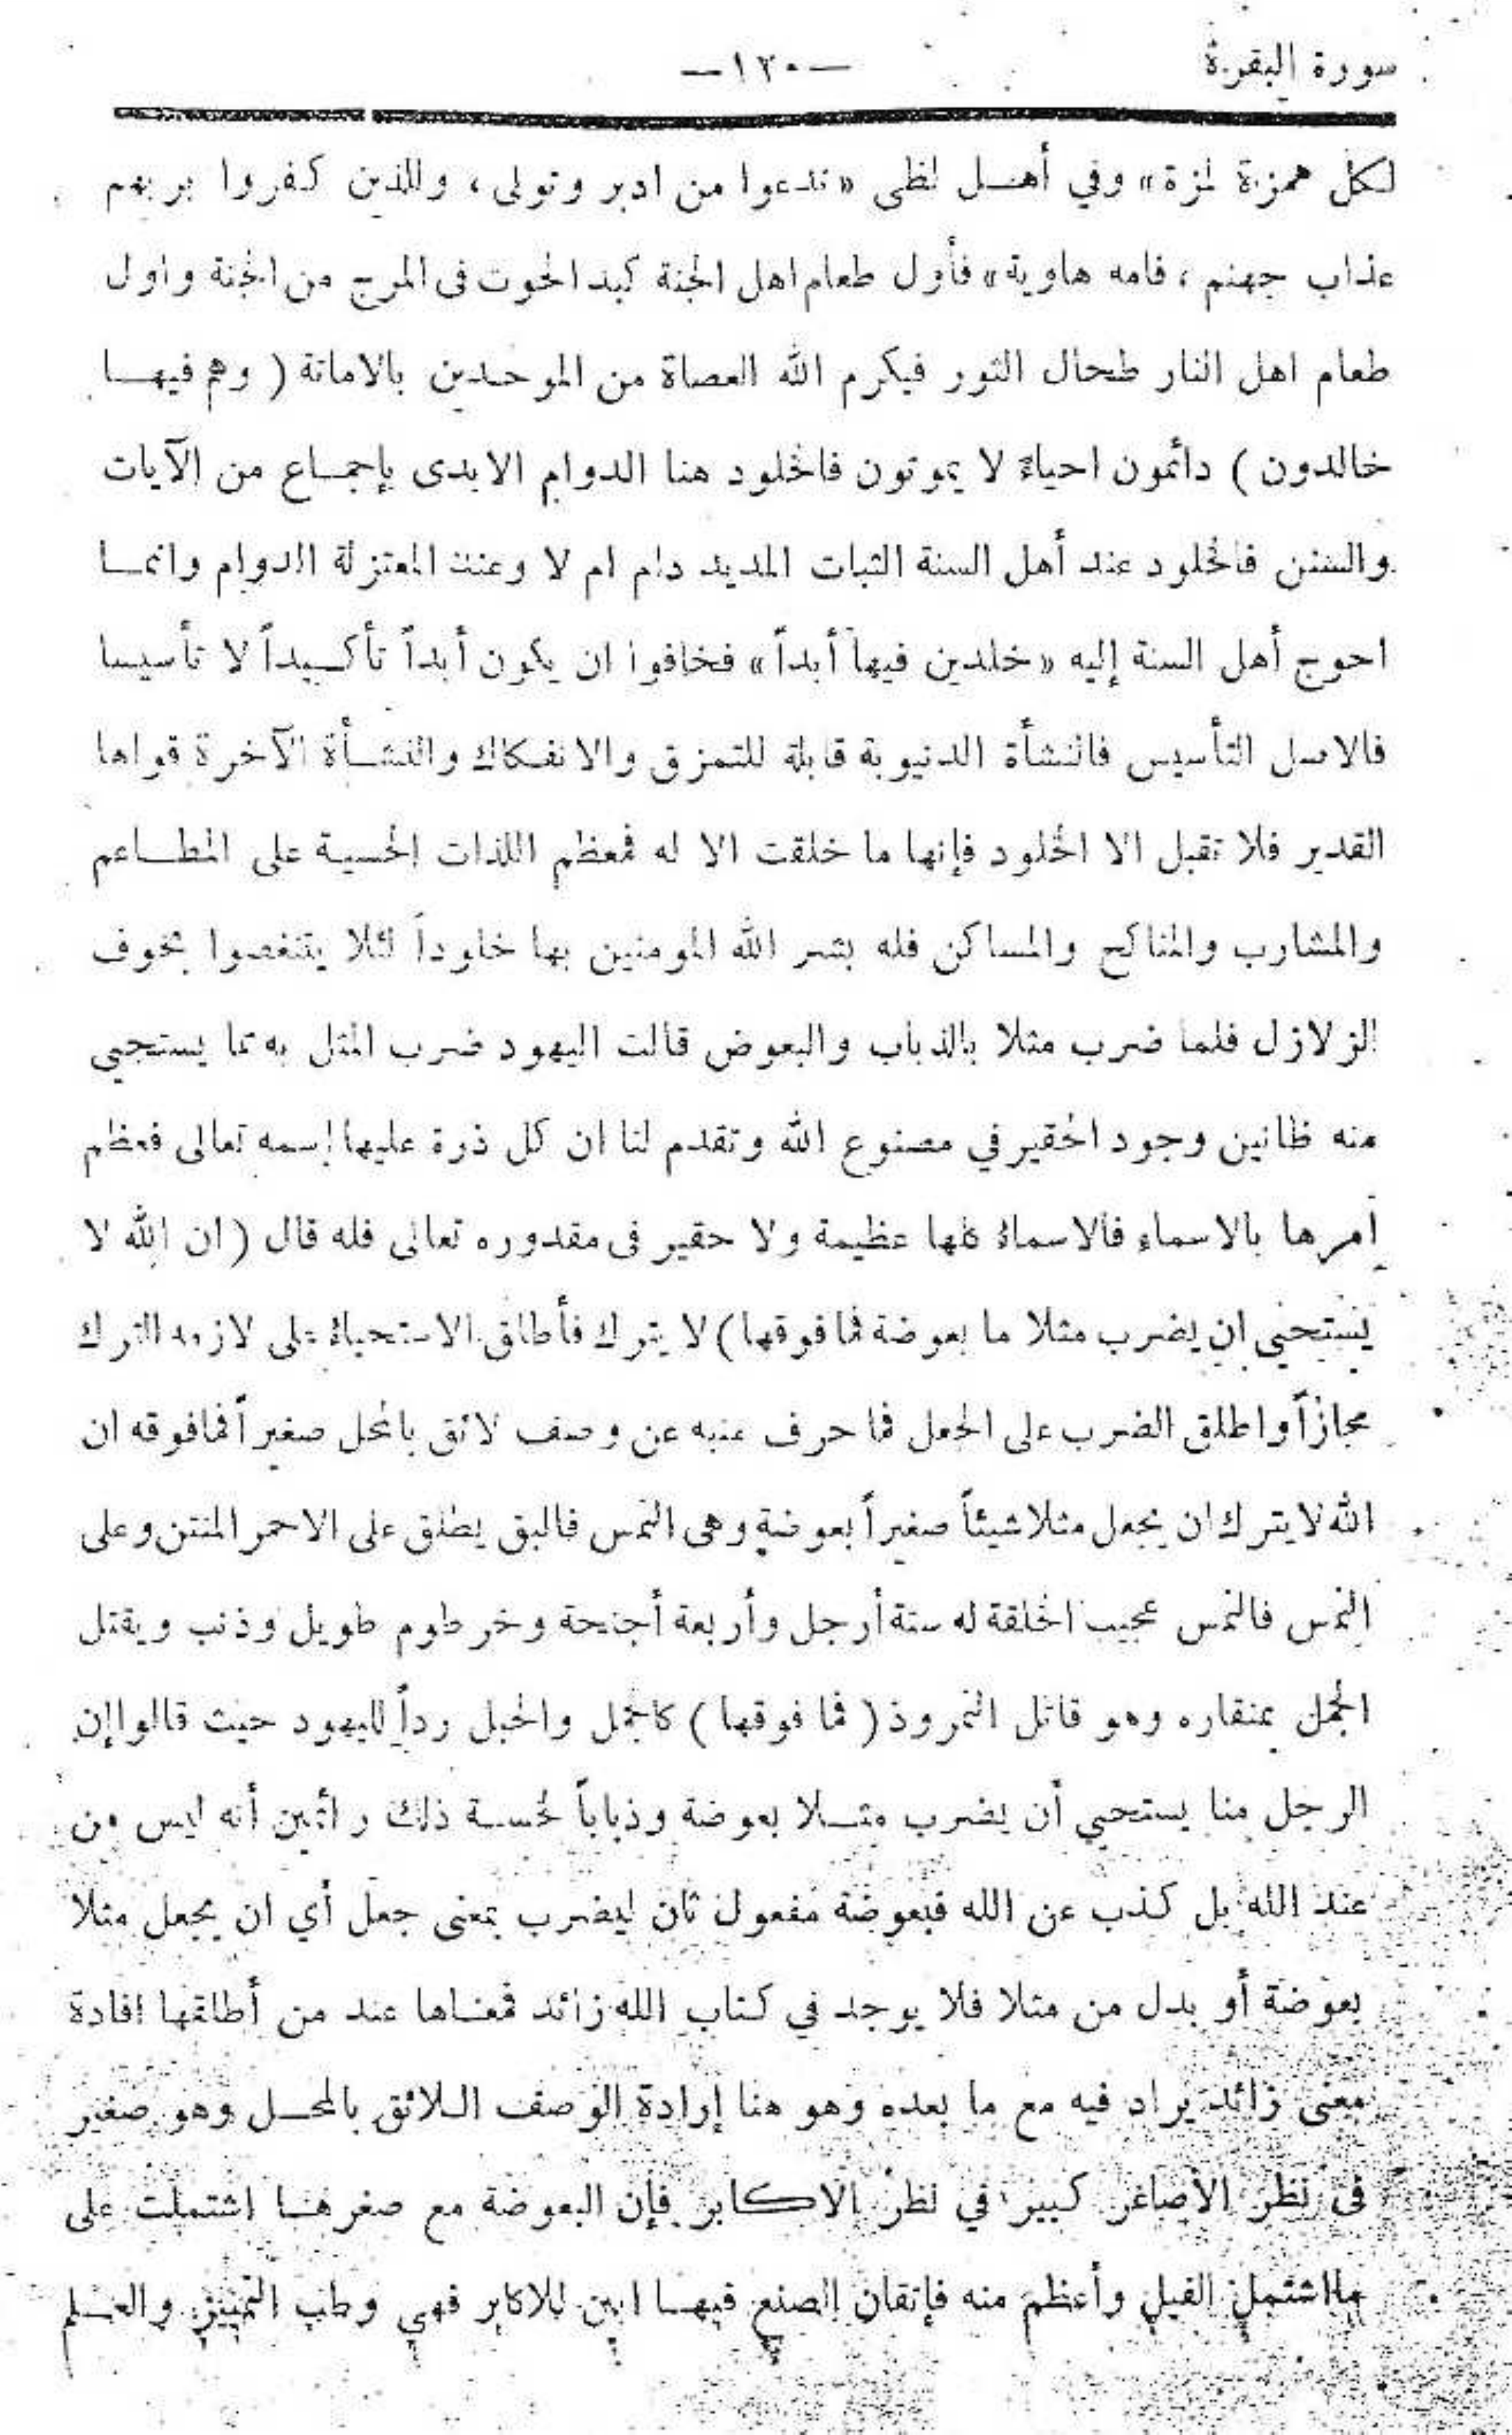 سورة البقرة
—١٢٠—
لكل همزة لمزة» وفي أهل لظى «تدعوا من ادبر وتولى، وللذين كفروا بربهم
عذاب جهنم، فامه هاوية» فأول طعام اهل الجنة كبد الحوت فى المرج من الجنة واول
طعام اهل النار طحال الثور فيكرم الله العصاة من الموحدين بالاماتة ( وهم فيها
خالدون ) دائمون احياءً لا يموتون فالخلود هنا الدوام الابدى بإجماع من الآيات
والسنن فالخلود عند أهل السنة الثبات المديد دام ام لا وعند المعتزلة الدوام وانما
احوج أهل السنة إليه «خلدين فيها أبداً» فخافوا ان يكون أبداً تأكيداً لا تأسيسا
فالاصل التأسيس فالنشأة الدنيوية قابلة للتمزق والانفكاك والنشأة الآخرة قواها
القدير فلا تقبل الا الخلود فإنها ما خلقت الا له فمعظم اللذات الحسية على المطاعم
والمشارب والمناكح والمساكن فله بشر الله المومنين بها خلوداً لئلا يتنغصوا بخوف
الزلازل فلما ضرب مثلا بالذباب والبعوض قالت اليهود ضرب المثل به مما يستحيى
منه ظانين وجود الحقير في مصنوع الله وتقدم لنا ان كل ذرة عليها إسمه تعالى فعظم
امرها بالاسماء فالاسماءُ كلها عظيمة ولا حقير فى مقدوره تعالى فله قال ( ان الله لا
يستحيى ان يضرب مثلا ما بعوضة فما فوقها) لا يترك فأطلق الاستحياءُ على لازمه الترك
مجازاً واطلق الضرب على الجعل فما حرف منبه عن وصف لائق بالمحل صغيراً فمافوقه ان
الله لا يترك ان يجعل مثلا شيئاً صغيراً بعوضة وهى النمس فالبق يطلق على الاحمر المنتن وعلى
النمس فالنمس عجيب الخلقة له ستة أرجل وأربعة أجنحة وخرطوم طويل وذنب ويقتل
الجمل بمنقاره وهو قاتل النمروذ ( فما فوقها ) كالجمل والجبل رداً لليهود حيث قالوا إن
الرجل منا يستحيي أن يضرب مثلا بعوضة وذباباً لخسة ذلك أنه ليس من
عند الله بل كذب عن الله فبعوضة مفعول ثان ليضرب بمعنى جعل أي ان يجعل مثلا
بعوضة أو بدل من مثلا فلا يوجد في كتاب الله زائد فمعناها عند من أطلقها افادة
معنى زائد يراد فيه مع ما بعده وهو هنا إرادة الوصف اللائق بالمحل وهو صغير
فى نظر الأصاغر كبير في نظر الاكابر فإن البعوضة مع صغرها اشتملت على
مااشتمل الفيل وأعظم منه فإتقان الصنع فيها ابين للاكابر فهي وطب التمييز والعلم